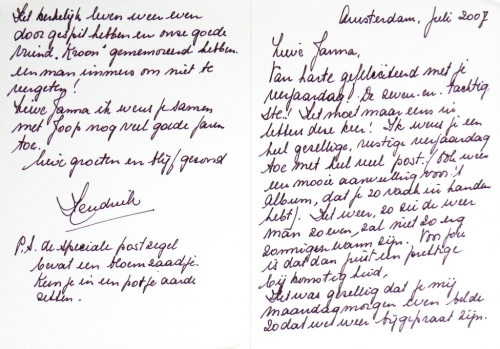 Amsterdam, juli 2007
Lieve Janna,
Van harte gefeliciteerd met je
verjaardag! De zeven-en-tachtig
ste! Het moet maar eens in
letters deze keer! Ik wens je een
heel gezellige, rustige verjaardag
toe met heel veel post! Ook weer
een mooie aanvulling voor 't
album, dat je zo vaak in handen
hebt). Het weer, zo zei de weer
man zoeven, zal niet zo erg
zonnig en warm zijn. Voor jou
is dat dan juist een prettige
bijkomstigheid.
Het was gezellig dat je mij
maandagmorgen even belde
zodat we weer bijgepraat zijn.
Het kerkelijk leven weer even
door gespit hebben en onze goede
vriend "Kroon" gememoreerd hebben.
een man immers om niet te
vergeten!
Lieve Janna ik wens je samen
met Joop nog veel goede jaren
toe.
lieve groeten en blijf gezond
Hendrik
P.S. de speciale postzegel
bevat een bloemzaadje.
Kun je in een potje aarde
zetten.